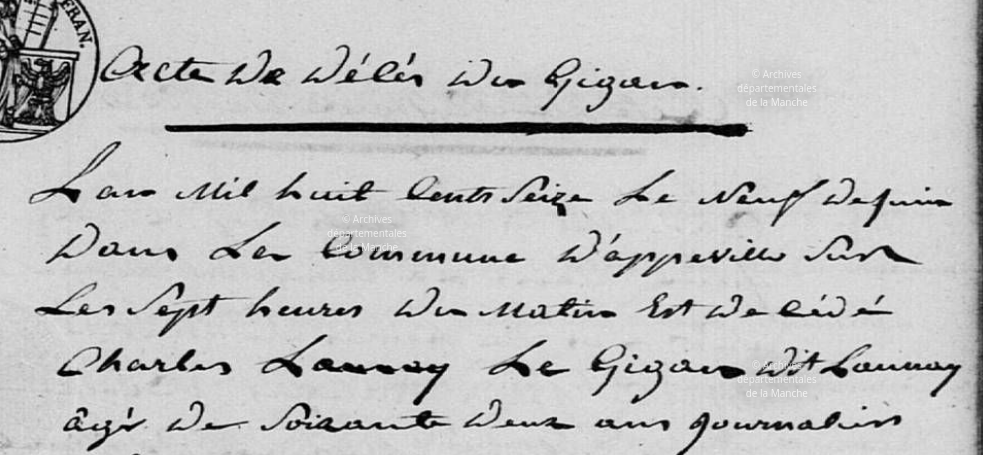 FRAN.
Acte De Décés Du Gigan.
L'an Mil huit Cents Seize Le Neuf De juin
Dans La Commune D'appeville Sur
Les Sept heures Du Matin Est Decédé
Charles Launay Le Gigan Dit Launay
âgé De Soixante Deux ans journalier
© Archives
départementales
de la Manche
© Archives
départementales
de la Manche
© Archives
départementales
de la Manche